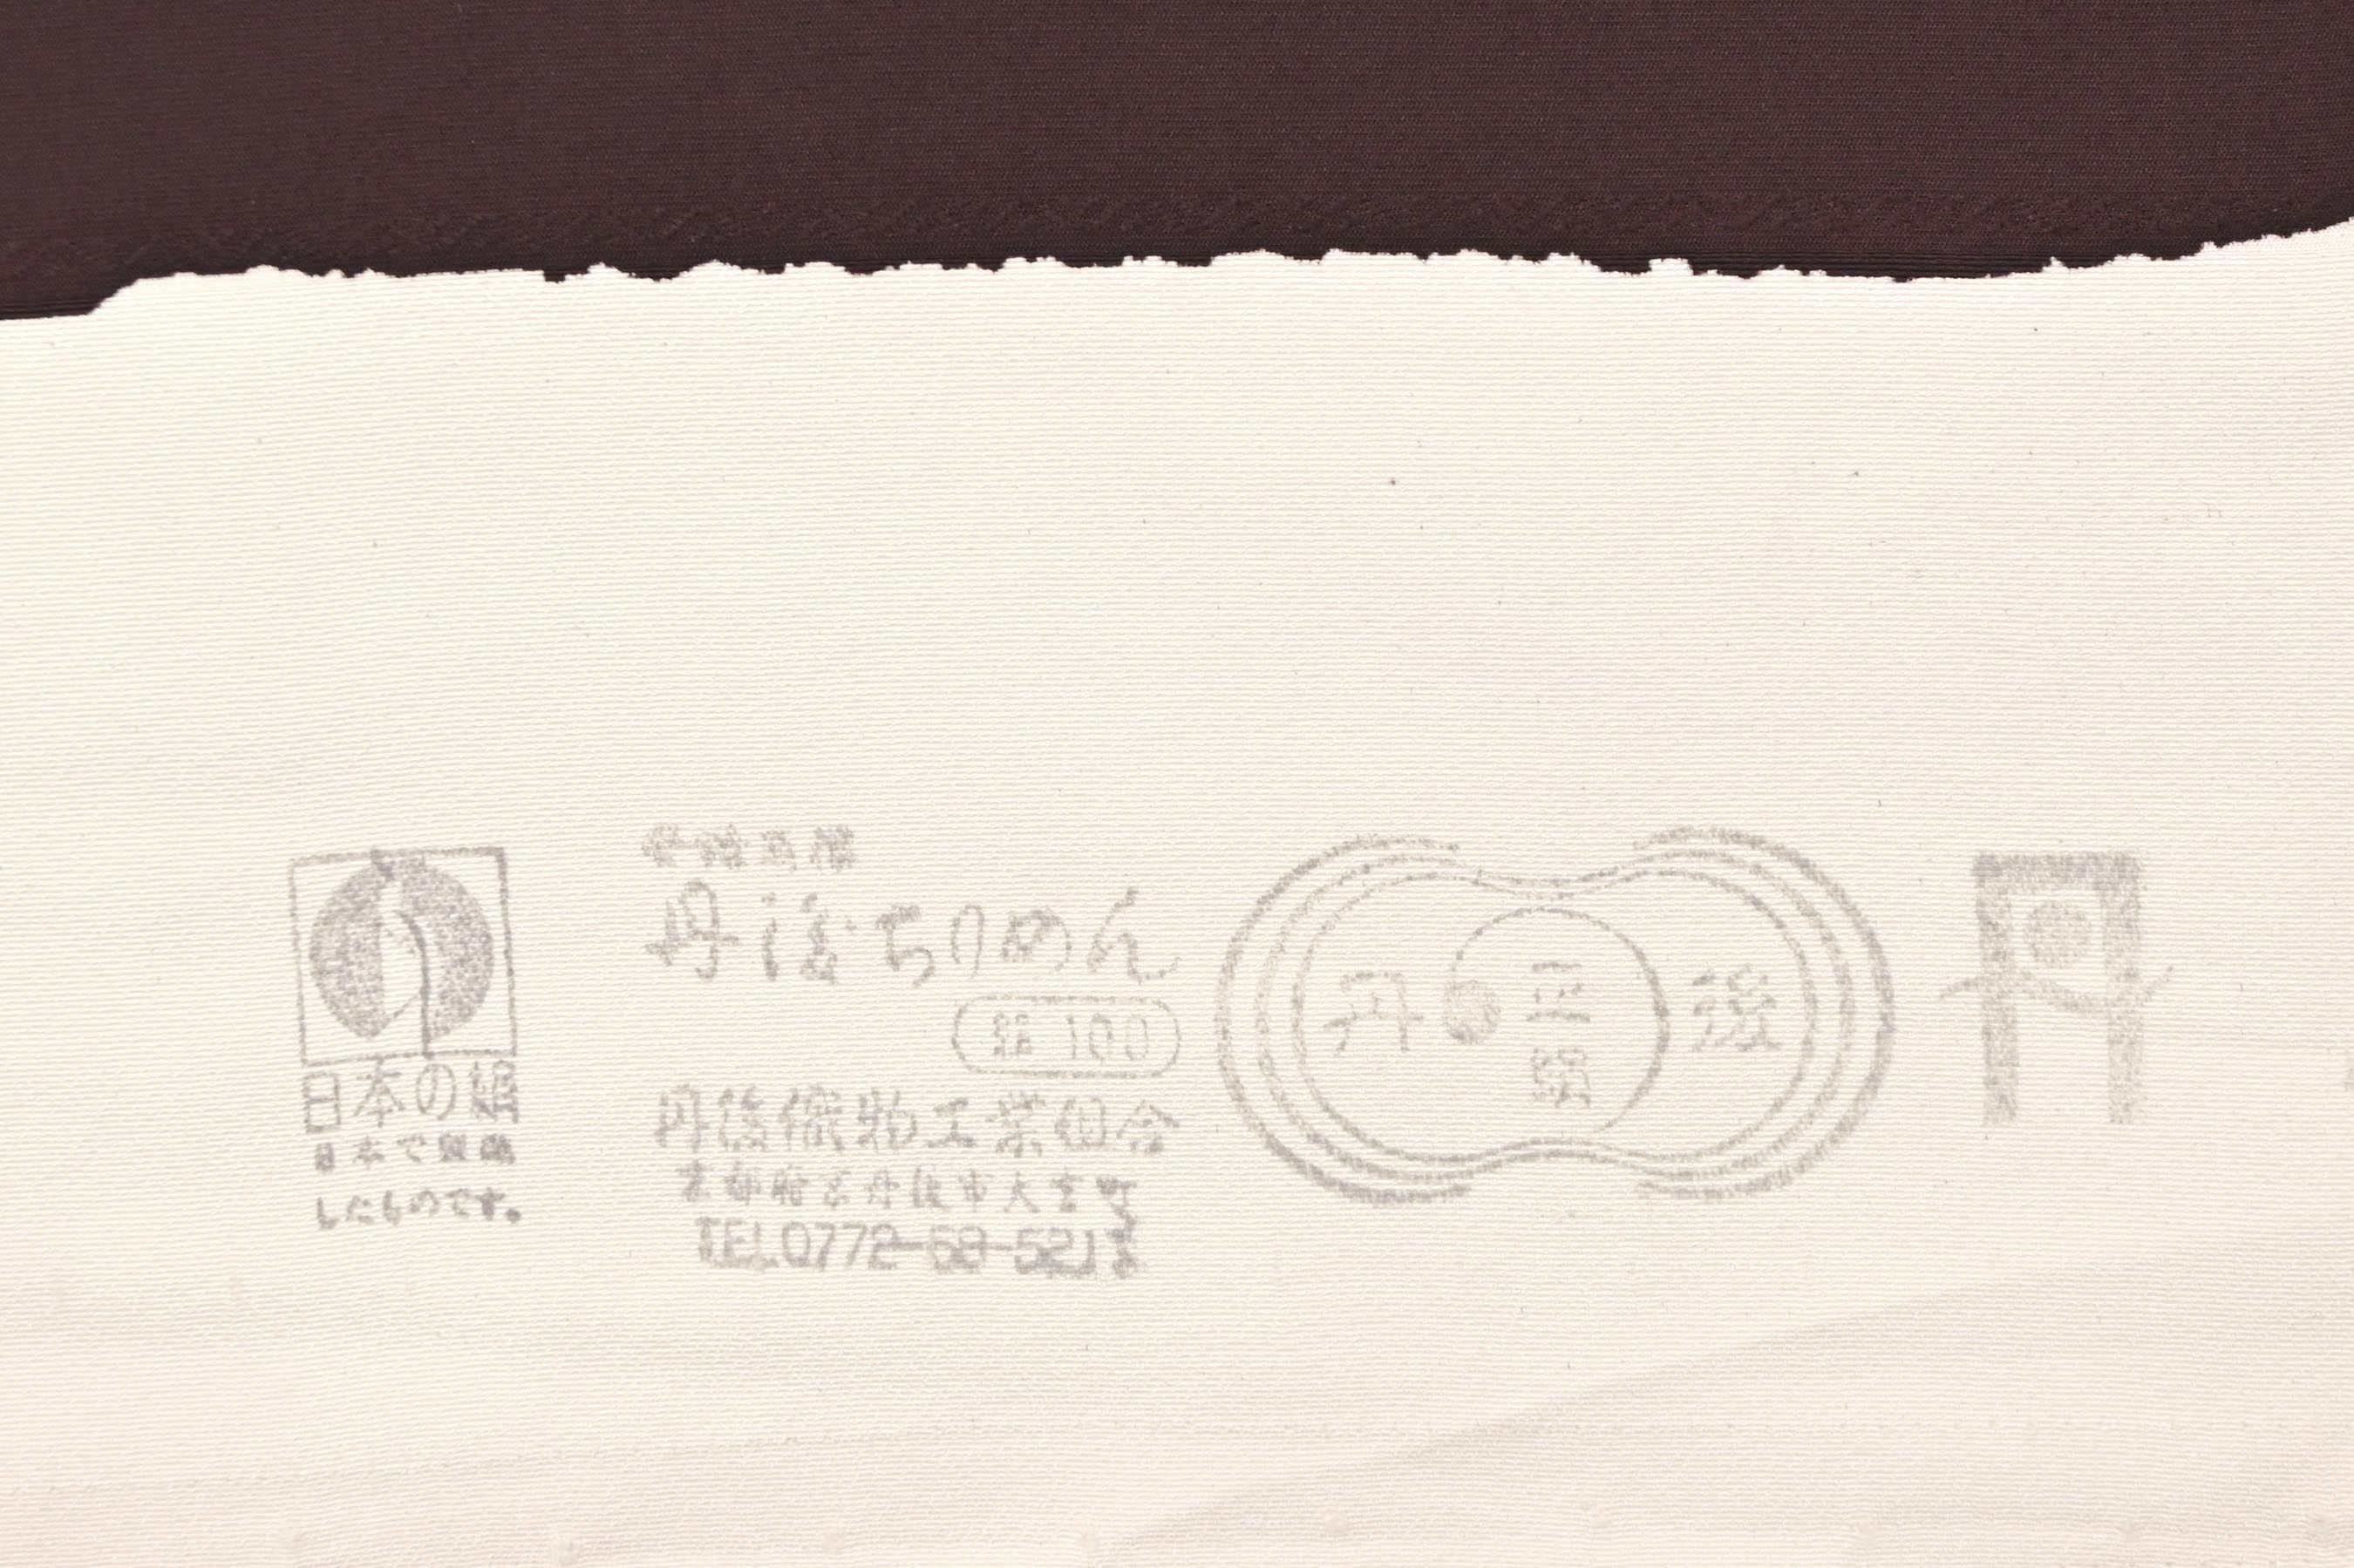 日本の絹
日本で製織
したものです。
登録商標
丹後ちりめん
絹 100
丹後織物工業組合
京都府京丹後市大宮町
TEL0772-68-5211
丹 正絹 後
丹